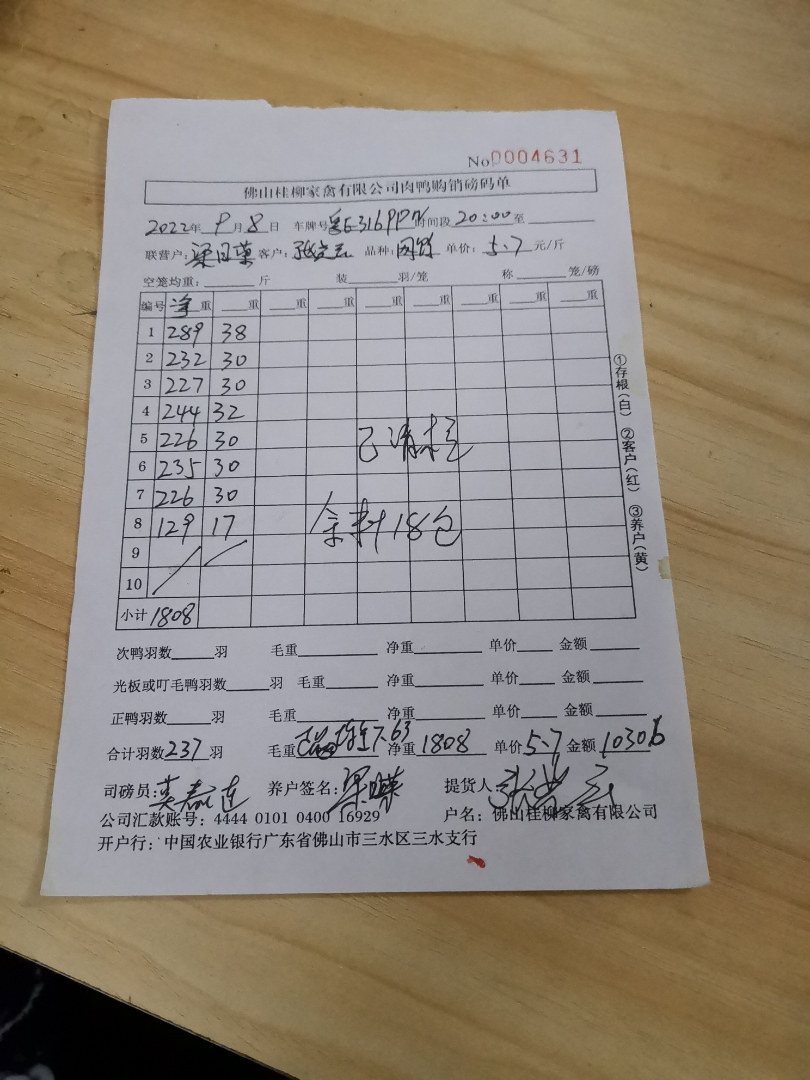 No 0004631
佛山桂柳家禽有限公司肉鸭购销磅码单
2022年 9月 8日 车牌号 时间段 20:00 至
联营户: 客户: 品种: 单价: 5.7 元/斤
空笼均重: 斤 装 羽/笼 称 笼/磅
编号 净重 重 重 重 重 重 重 重
1 289 38
2 232 30
3 227 30
4 244 32
5 226 30
6 235 30
7 226 30
8 129 17
9
10
已清栏
余料18包
小计 1808
①存根(白) ②客户(红) ③养户(黄)
次鸭羽数 羽 毛重 净重 单价 金额
光板或叮毛鸭羽数 羽 毛重 净重 单价 金额
正鸭羽数 羽 毛重 净重 单价 金额
合计羽数 237 羽 毛重 7.63 净重 1808 单价 5.7 金额 10306
司磅员: 养户签名: 提货人
公司汇款账号: 4444 0101 0400 16929 户名: 佛山桂柳家禽有限公司
开户行: 中国农业银行广东省佛山市三水区三水支行